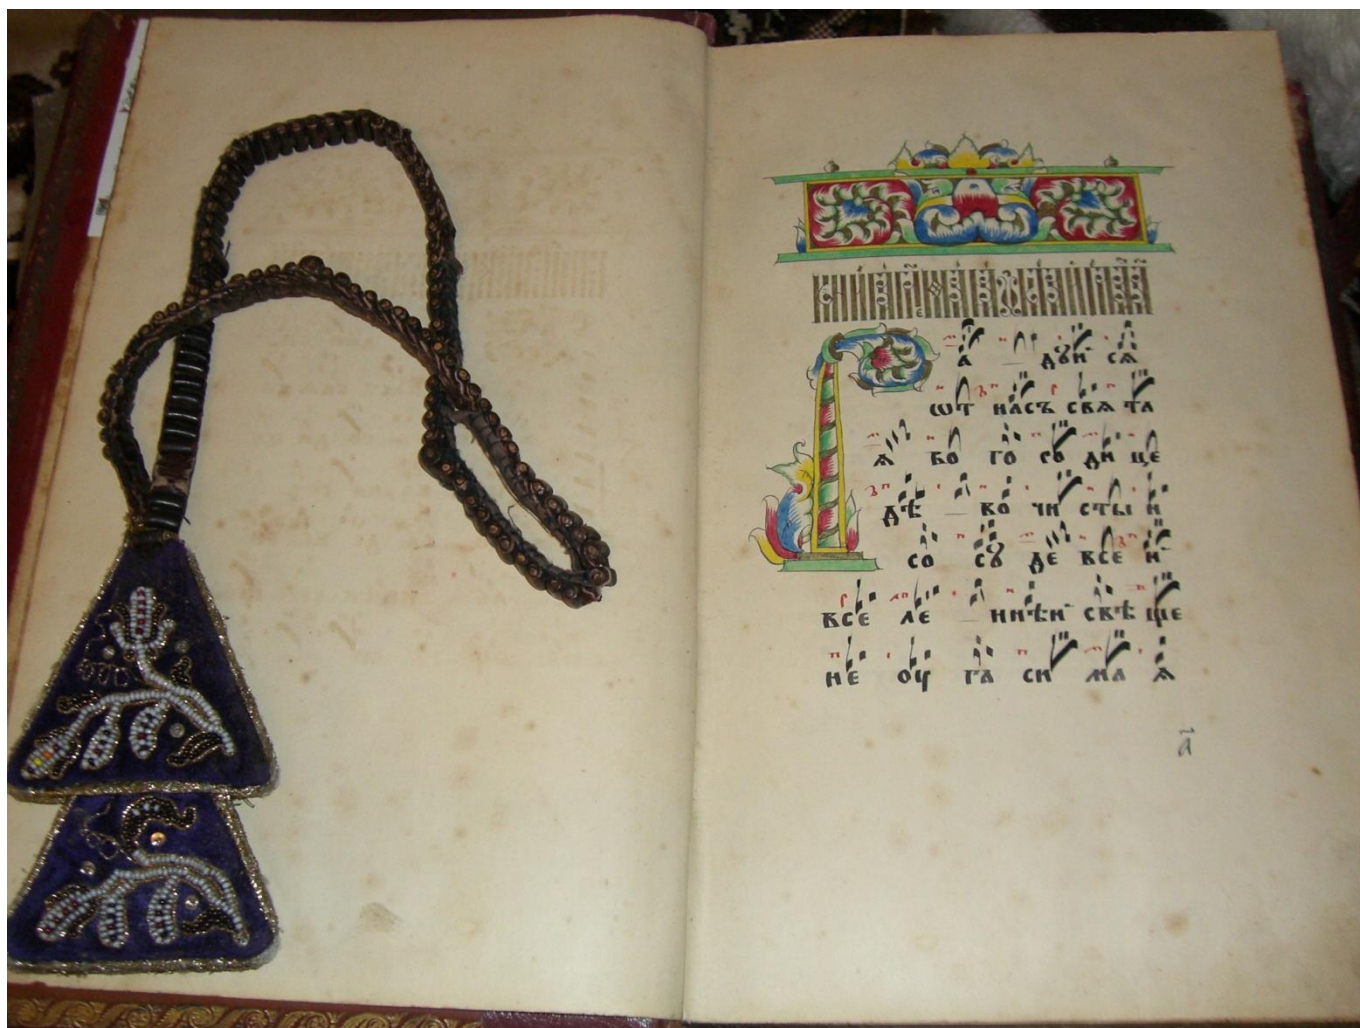 Ра дꙋи сѧ
ѡт насъ свѧ та
ѧ бо го ро ди це
дѣ во чи сты и
со сꙋ де все и
все ле ннѣи свѣ ще
не оу га си ма ѧ
а҃